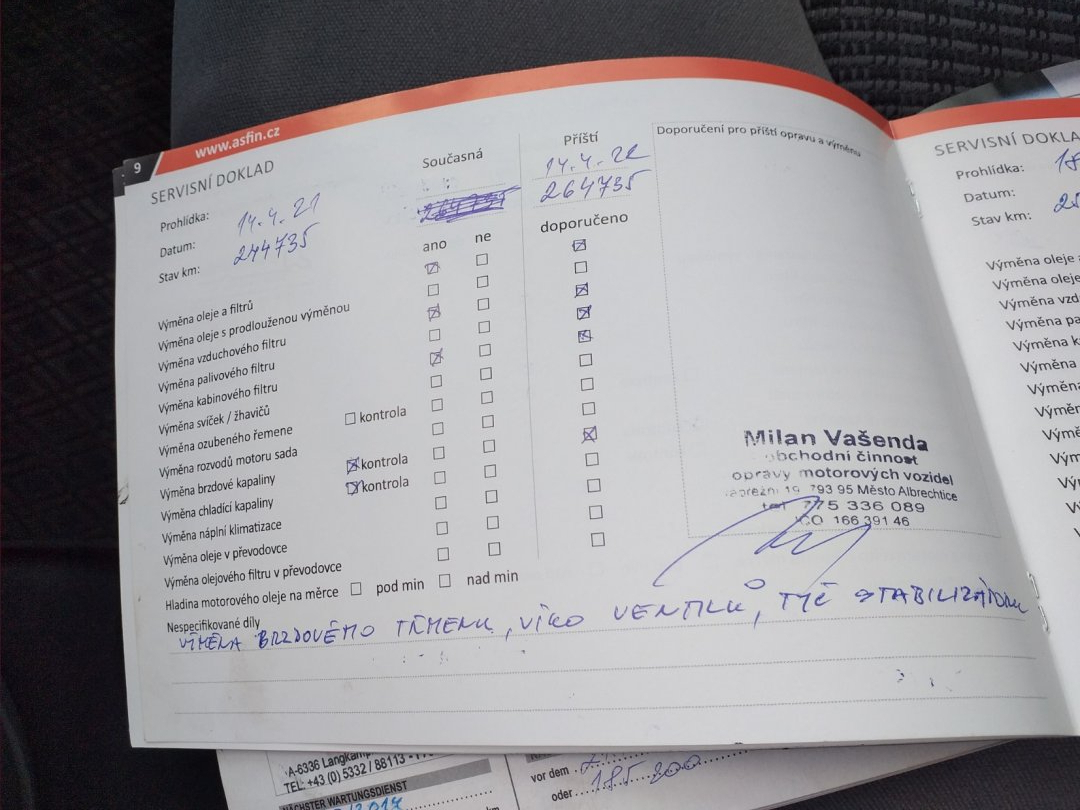 9
www.asfin.cz
SERVISNÍ DOKLAD
Současná
Příští
Doporučení pro příští opravu a výměnu
Prohlídka:
14.4.21
14.4.22
Datum:
244735
264735
Stav km:
ano
ne
doporučeno
Výměna oleje a filtrů
Výměna oleje s prodlouženou výměnou
Výměna vzduchového filtru
Výměna palivového filtru
Výměna kabinového filtru
Výměna svíček / žhavičů
Výměna ozubeného řemene kontrola
Výměna rozvodů motoru sada
Výměna brzdové kapaliny kontrola
Výměna chladící kapaliny kontrola
Výměna náplní klimatizace
Výměna oleje v převodovce
Výměna olejového filtru v převodovce
Hladina motorového oleje na měrce pod min nad min
Nespecifikované díly
VÝMĚNA BRZDOVÉHO TŘMENU, VÍKO VENTILŮ, TYČ STABILIZÁTORU
Milan Vašenda
obchodní činnost
opravy motorových vozidel
19, 793 95 Město Albrechtice
tel 775 336 089
IČO 166 391 46
SERVISNÍ DOKLA
Prohlídka:
Datum:
Stav km:
Výměna oleje a
Výměna oleje
Výměna vzd
Výměna pa
Výměna k
Výměna
Výměna
Výměn
Výmě
Vým
Vým
Vý
A-6336 Langkamp
TEL: +43 (0) 5332 / 88113
NÄCHSTER WARTUNGSDIENST
vor dem
oder 185 200